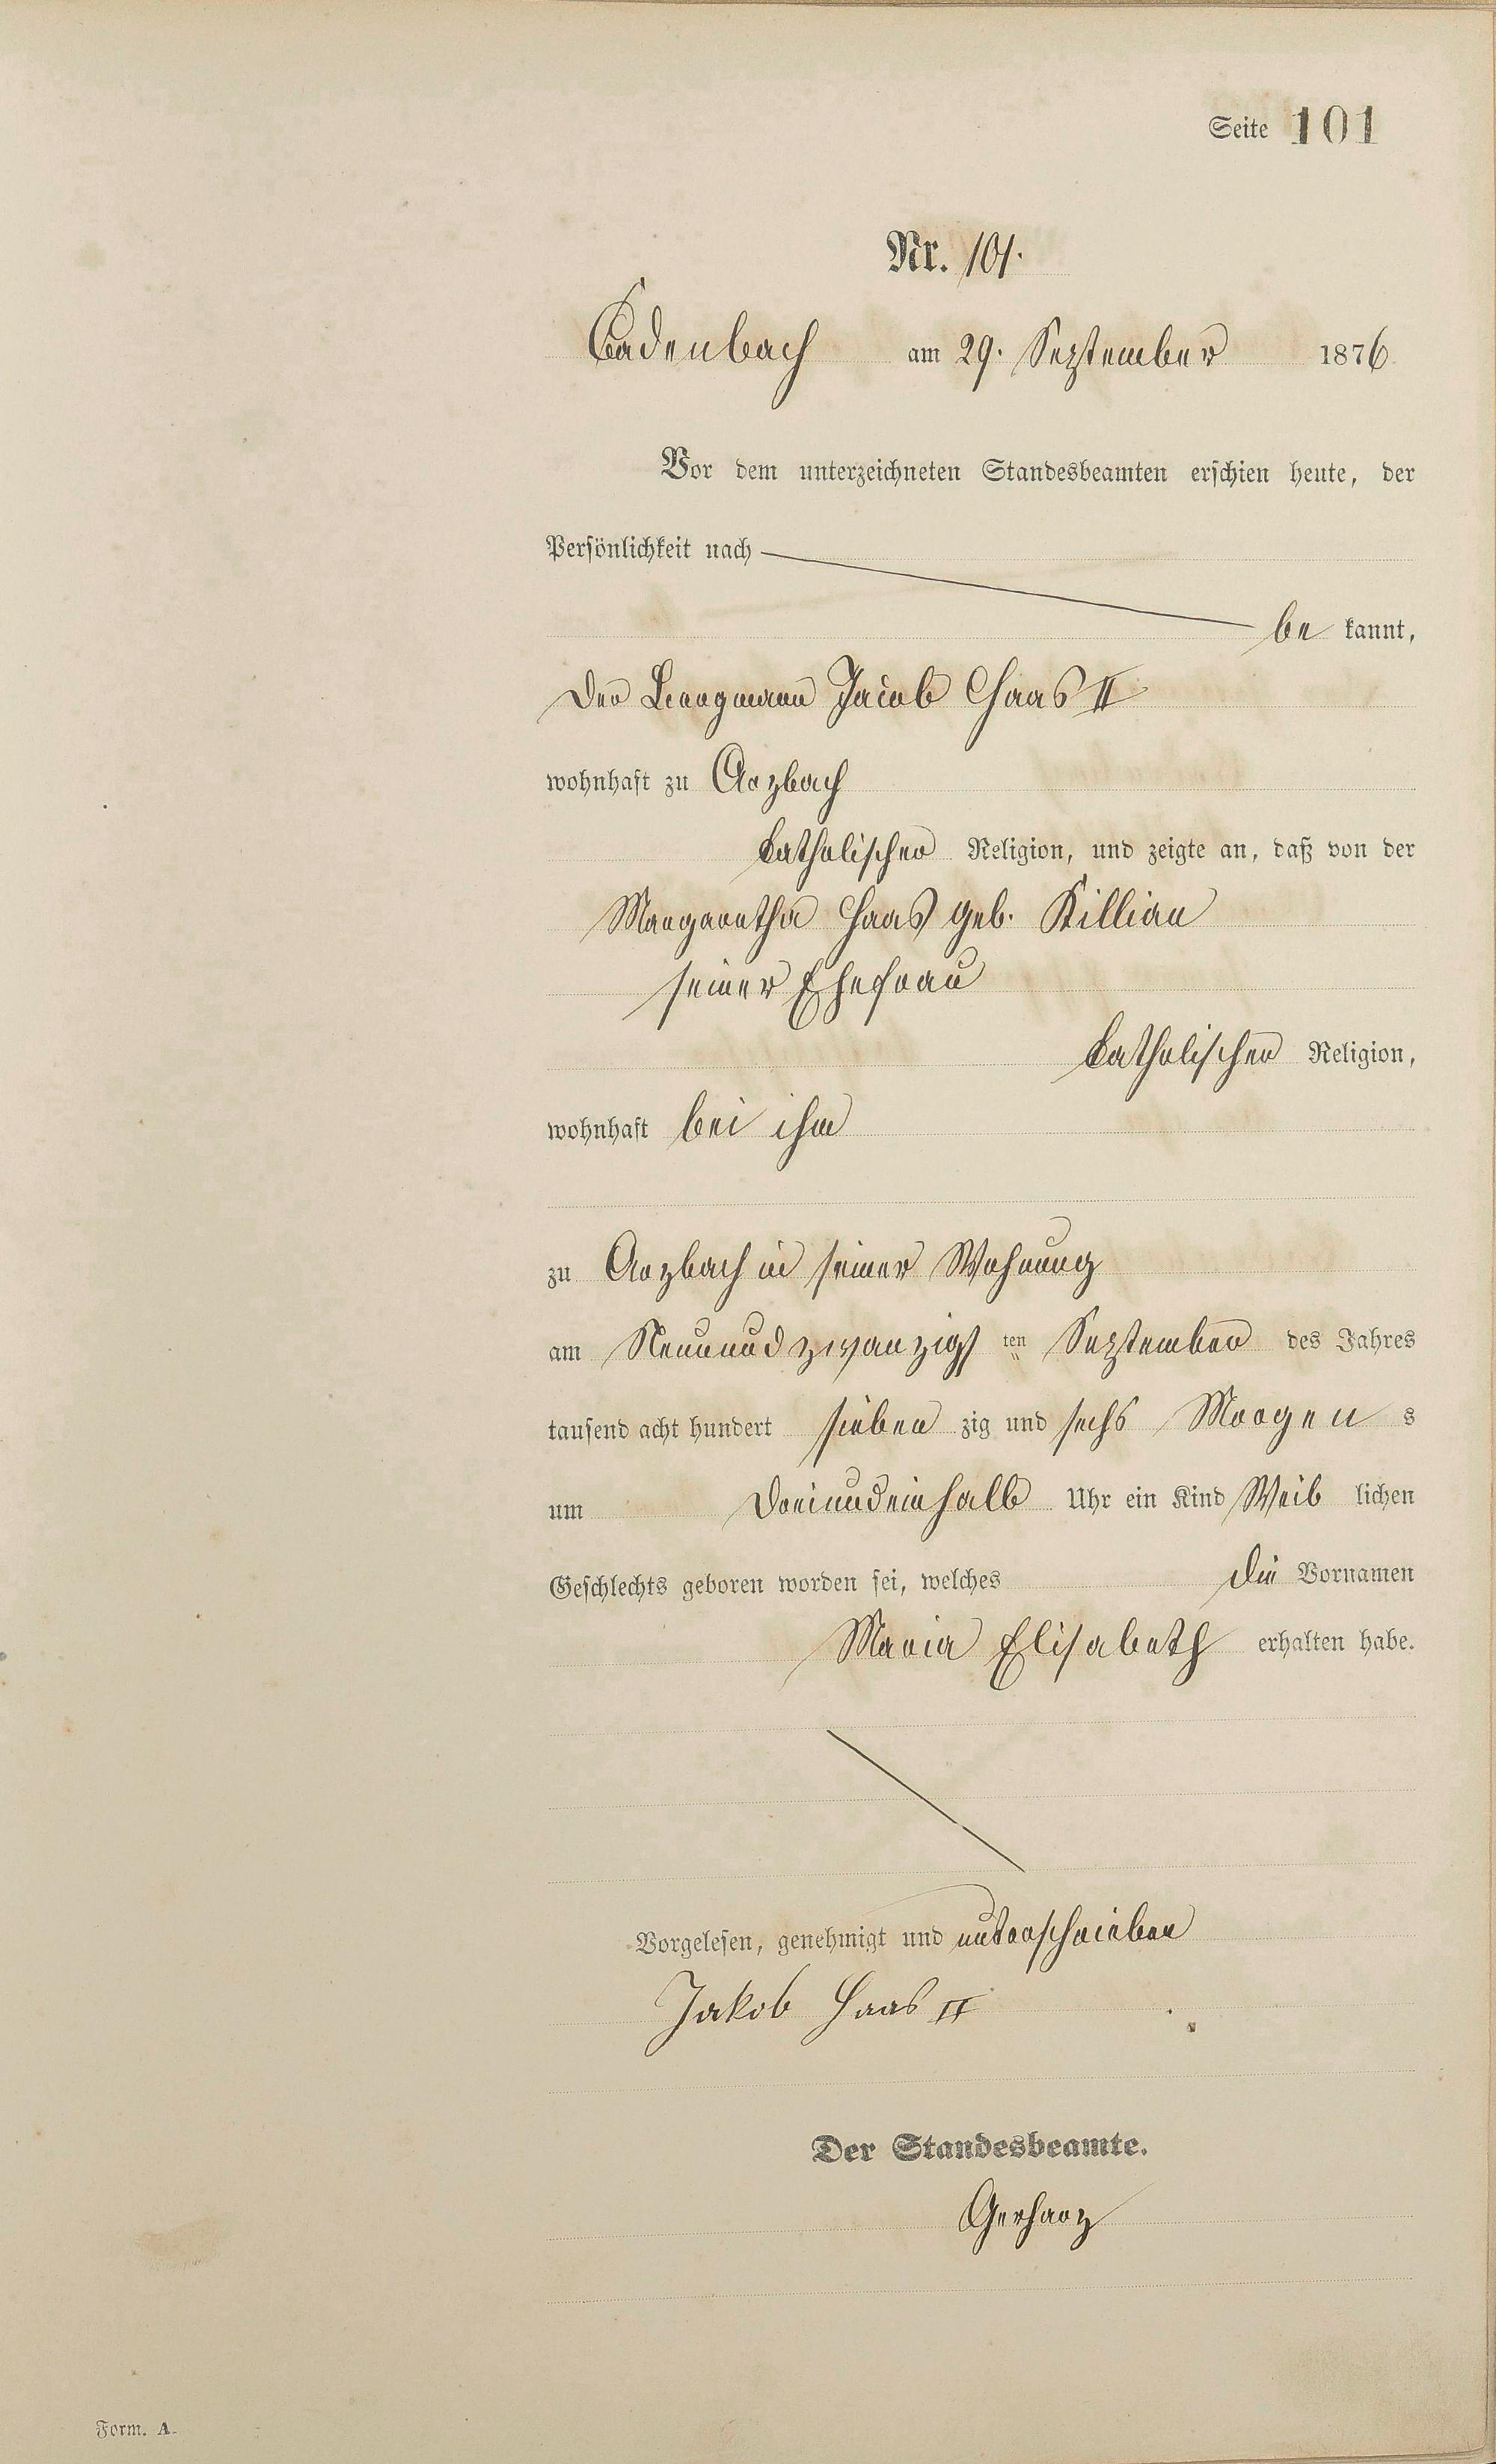 Seite 101
Nr. 101.
Cadenbach am 29. September 1876
Vor dem unterzeichneten Standesbeamten erschien heute, der
Persönlichkeit nach
be kannt,
der Bergmann Jacob Haas II
wohnhaft zu Arzbach
katholischer Religion, und zeigte an, daß von der
Margaretha Haas geb. Killian
seiner Ehefrau
katholischer Religion,
wohnhaft bei ihm
zu Arzbach in seiner Wohnung
am Neunundzwanzigs ten September des Jahres
tausend acht hundert sieben zig und sechs Morgen s
um dreiundeinhalb Uhr ein Kind Weib lichen
Geschlechts geboren worden sei, welches die Vornamen
Maria Elisabeth erhalten habe.
Vorgelesen, genehmigt und unterschrieben
Jakob Haas II
Der Standesbeamte.
Gerharz
Form. A.